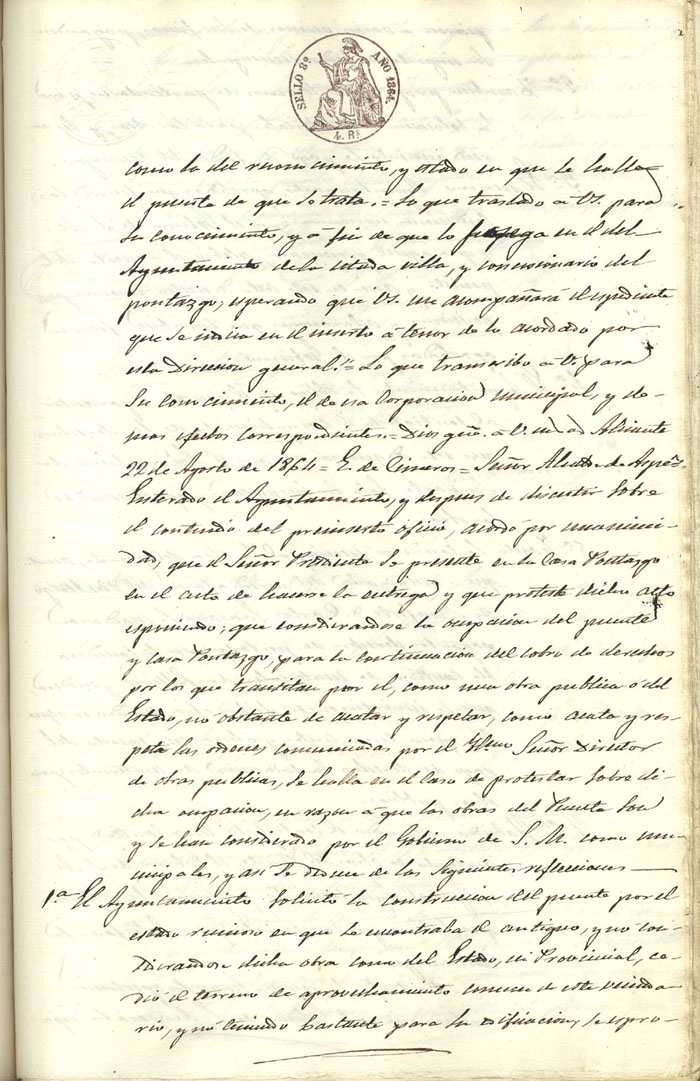 SELLO 8º AÑO 1864.
4. Rs.
como la del reconocimiento, y estado en que se halle
el puente de que se trata. = Lo que traslado a VS. para
su conocimiento, y á fin de que lo haga en el del
Ayuntamiento de la citada villa, y concesionario del
pontazgo; esperando que VS. me acompañará el espediente
que se indica en el inserto á tenor de lo acordado por
esta Direccion general." = Lo que transcribo a V. para
su conocimiento, el de esa Corporacion municipal, y de-
mas efectos correspondientes. = Dios gue. a V. m. as. Alicante
22 de Agosto de 1864 = E. de Cisneros = Señor Alcalde de Aspe."
Enterado el Ayuntamiento, y despues de discutir sobre
el contenido del preinserto oficio, acordó por unanimi-
dad, que el Señor Presidente se presente en la Casa Pontazgo
en el acto de hacerse la entrega y que proteste dicho acto
esponiendo; que considerandose la ocupacion del puente
y casa Pontazgo, para la continuacion del cobro de derechos
por los que transitan por el, como una obra publica o del
Estado, no obstante de acatar y respetar, como acata y res-
peta las ordenes comunicadas por el Yltmo Señor Director
de obras publicas, se halla en el caso de protestar sobre di-
cha ocupacion, en razon á que las obras del Puente son
y se han considerado por el Gobierno de S. M. como mu-
nicipales, y asi se deduce de las siguientes reflecciones
1.ª El Ayuntamiento solicitó la construccion del puente por el
estado ruinoso en que se encontraba el antiguo, y no con-
siderandose dicha obra como del Estado, ni Provincial, ce-
dió el terreno de aprovechamiento comun de este vecinda-
rio, y no teniendo bastante para su edificacion, se espro-